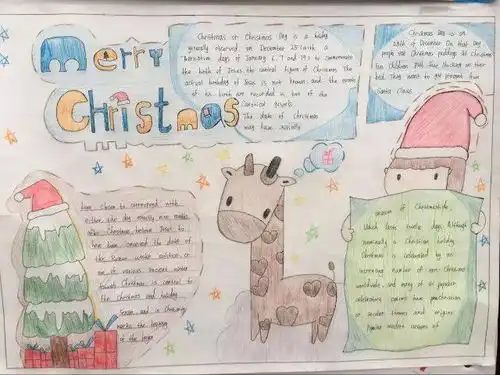 Merry
Christmas
Christmas or Christmas Day is a holiday
generally observed on December 25 (with a
alternative days of January 6, 7 and 19) to commemorate
the birth of Jesus, the central figure of Christians. The
actual birthday of Jesus is not known and the events
of his birth are recorded in two of the
Canonical gospels
The date of Christmas
may have initially
Christmas Day is on
25th of December. On that day
people eat Christmas puddings at Christmas
Children put the stocking on their
bed. They want to get present from
Santa Claus.
been chosen to correspond with
either the day exactly nine months
after Christmas believe Jesus to
have been conceived the date of
the Roman winter solstice or
one of various ancient winter
Christmas is central to
the Christmas and holiday
Season and in Christianity
marks the
of the larger
season of Christmastide,
Which lasts twelve days. Although
nominally a Christian holiday,
Christmas is celebrated by an
increasing number of non-Christians
worldwide and many of its popular
celebratory customs have
or secular themes and origins
Popular modern customs of